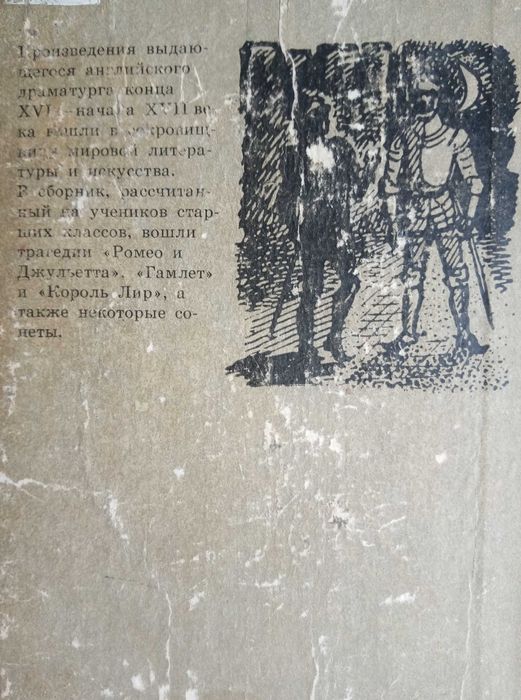 Произведения выдаю-
щегося английского
драматурга конца
XVI—начала XVII ве-
ка вошли в сокровищ-
ницу мировой литера-
туры и искусства.
В сборник, рассчитан-
ный на учеников стар-
ших классов, вошли
трагедии «Ромео и
Джульетта», «Гамлет»
и «Король Лир», а
также некоторые со-
неты.